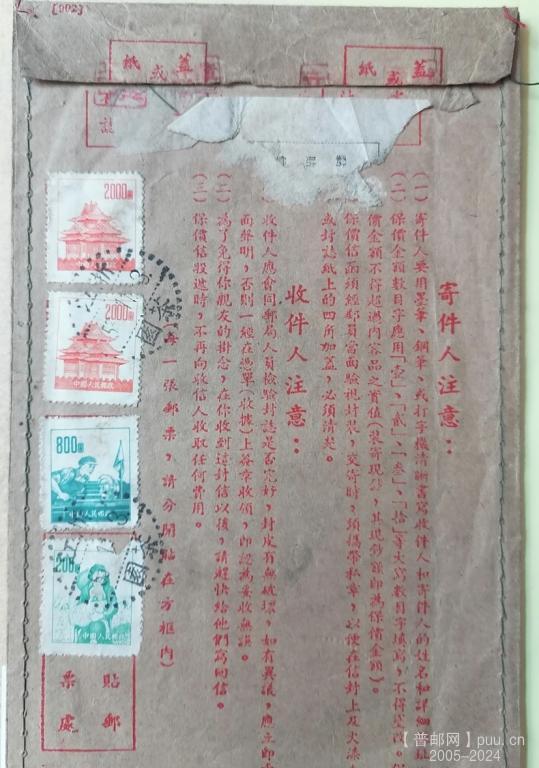 [902]
蓋
或
紙
蓋
或
紙
寄件人注意：
(一) 寄件人要用墨筆、鋼筆、或打字機清晰書寫收件人和寄件人的姓名和詳細地址
(二) 保價金額數目字應用「壹」、「貳」、「叁」、「拾」等大寫數目字填寫，不得塗改。保
價金額不得超過內容品之實值(裝寄現鈔，其現鈔額即為保價金額)。
保價信函須經郵員當面驗視封裝，交寄時，須攜帶私章，以便在信封上及火漆
或封誌紙上的四所加蓋，必須清晰。
收件人注意：
收件人應會同郵局人員檢驗封誌是否完好，封皮有無破壞，如有異議，應立即
面聲明，否則一經在憑單(收據)上簽章收領，即認為妥收無誤。
(二) 為了免得你親友的掛念，在你收到這封信以後，請趕快給他們寫回信。
(三) 保價信投遞時，不再向收信人收取任何費用。
(每一張郵票，請分開貼在方框內)
2000圓
2000圓
中國人民郵政
800圓
中國人民郵政
200圓
中國人民郵政
貼郵
票處
【普邮网】puu.cn
2005-2024